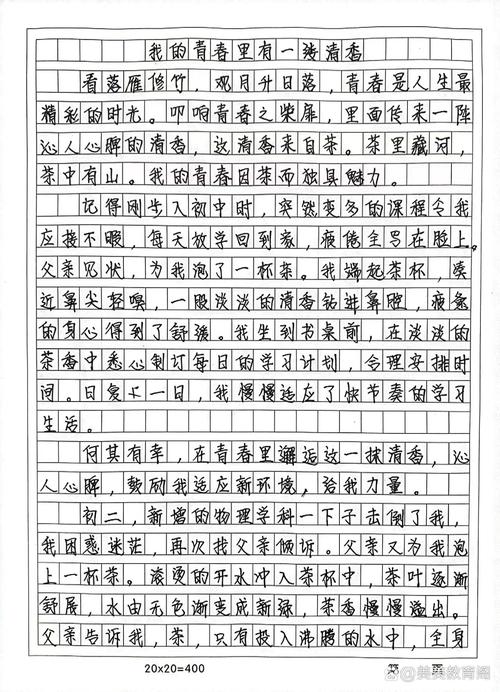 我的青春里有一缕清香
看落雁修竹，观月升日落，青春是人生最
精彩的时光。叩响青春之柴扉，里面传来一阵
沁人心脾的清香，这清香来自茶。茶里藏河，
茶中有山。我的青春因茶而独具魅力。
记得刚步入初中时，突然变多的课程令我
应接不暇，每天放学回到家，疲倦全写在脸上。
父亲见状，为我泡了一杯茶。我端起茶杯，凑
近鼻尖轻嗅，一股淡淡的清香钻进鼻腔，疲惫
的身心得到了舒缓。我坐到书桌前，在淡淡的
茶香中悉心制订每日的学习计划，合理安排时
间。日复一日，我慢慢适应了快节奏的学习
生活。
何其有幸，在青春里邂逅这一抹清香，沁
人心脾，鼓励我适应新环境，给我力量。
初二，新增的物理学科一下子击倒了我，
我困惑迷茫，再次找父亲倾诉。父亲又为我泡
上一杯茶。滚烫的开水冲入茶杯中，茶叶逐渐
舒展，水由无色渐变成新绿，茶香慢慢溢出。
父亲告诉我，茶，只有投入沸腾的水中，全身
20×20=400
美美教育阁